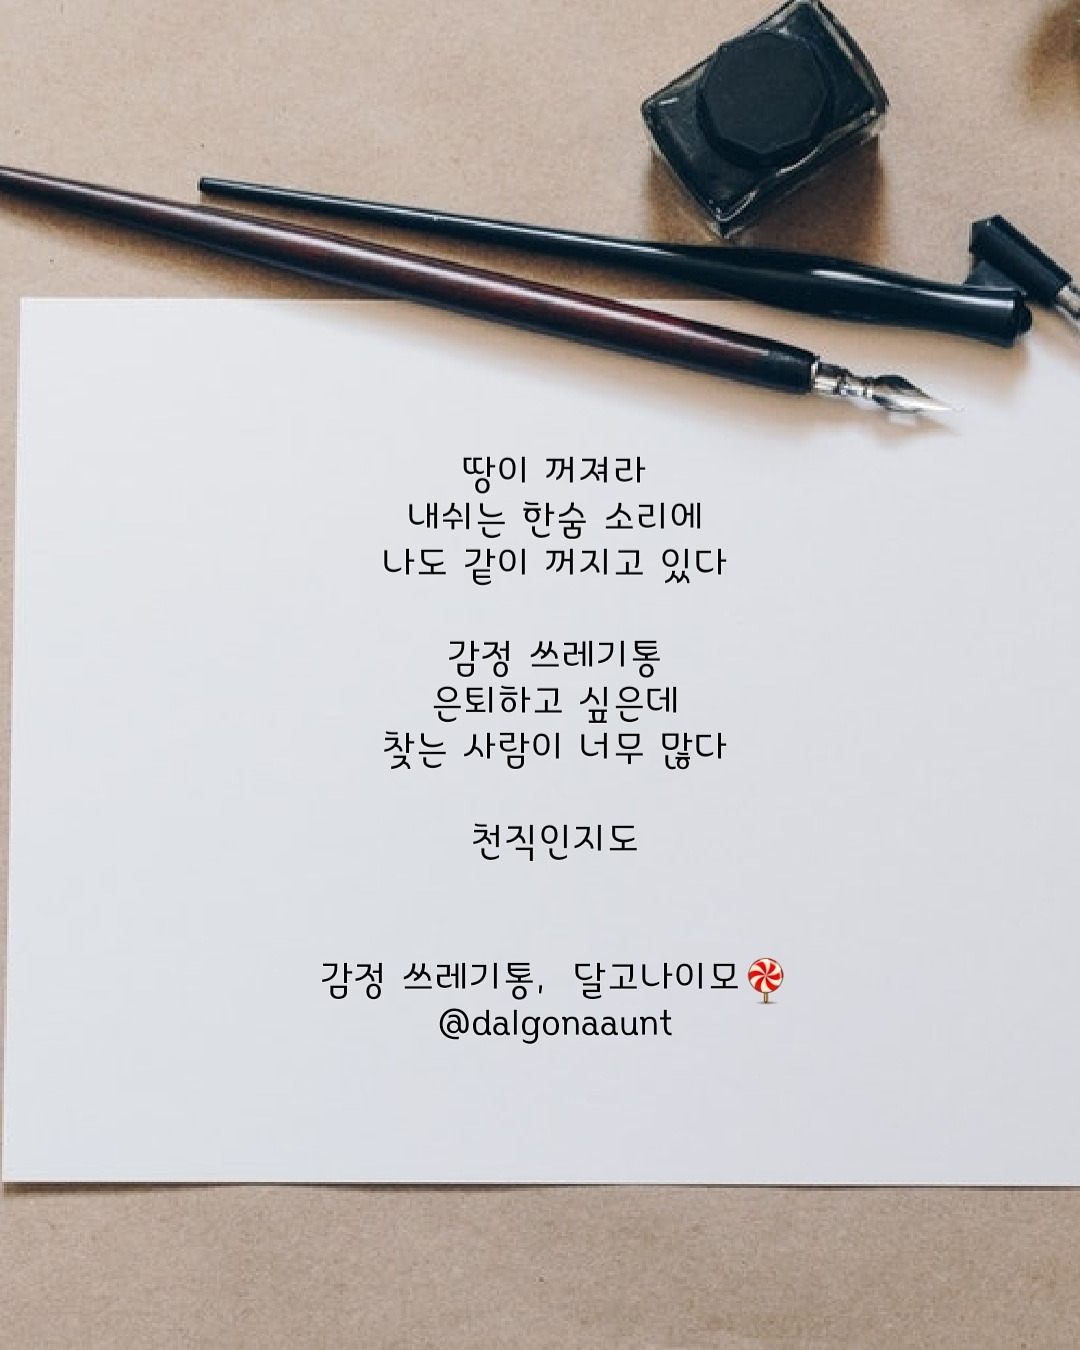 땅이 꺼져라
내쉬는 한숨 소리에
나도 같이 꺼지고 있다
감정 쓰레기통
은퇴하고 싶은데
찾는 사람이 너무 많다
천직인지도
감정 쓰레기통, 달고나이모🍭
@dalgonaaunt